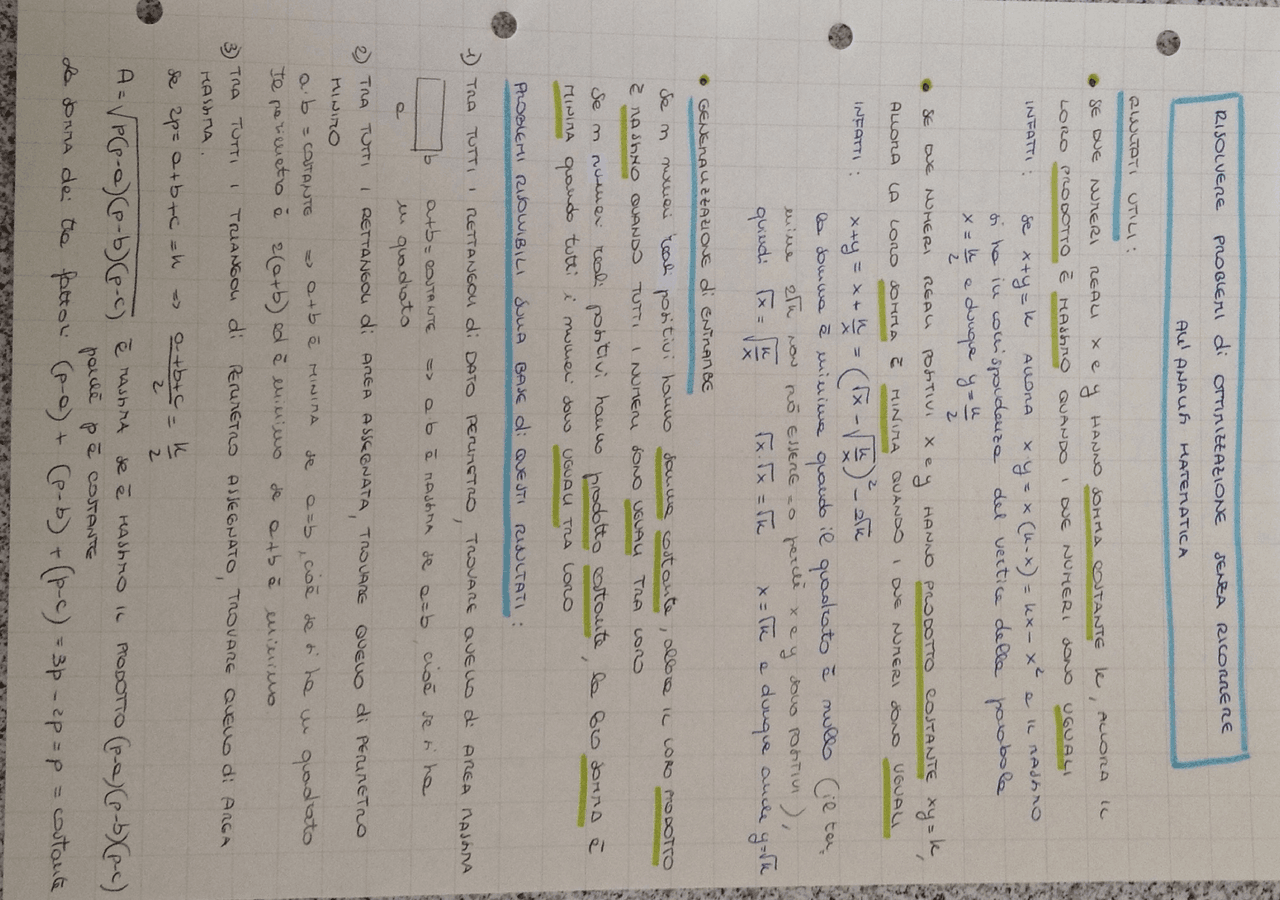 RISOLVERE PROBLEMI di OTTIMIZZAZIONE SENZA RICORRERE
ALL'ANALISI MATEMATICA
RISULTATI UTILI:
• SE DUE NUMERI REALI x e y HANNO SOMMA COSTANTE k, ALLORA IL
LORO PRODOTTO È MASSIMO QUANDO I DUE NUMERI SONO UGUALI
INFATTI: se x+y=k ALLORA x·y = x(k-x) = kx - x² e IL MASSIMO
si ha in corrispondenza del vertice della parabola
x = k/2 e dunque y = k/2
• SE DUE NUMERI REALI POSITIVI x e y HANNO PRODOTTO COSTANTE xy=k,
ALLORA LA LORO SOMMA È MINIMA QUANDO I DUE NUMERI SONO UGUALI
INFATTI: x+y = x + k/x = (√x - √(k/x))² - 2√k
la somma è minima quando il quadrato è nullo (il ter,
mine 2√k non può ESSERE =0 perché x e y sono POSITIVI),
quindi √x = √(k/x) √x·√x = √k x = √k e dunque anche y=√k
• GENERALIZZAZIONE di ENTRAMBE
Se n numeri reali positivi hanno somma costante, allora IL LORO PRODOTTO
È MASSIMO QUANDO TUTTI I NUMERI SONO UGUALI TRA LORO
Se n numeri reali positivi hanno prodotto costante, la loro SOMMA È
MINIMA quando tutti i numeri sono UGUALI TRA LORO
PROBLEMI RISOLVIBILI SULLA BASE di QUESTI RISULTATI:
1) TRA TUTTI I RETTANGOLI di DATO PERIMETRO, TROVARE QUELLO di AREA MASSIMA
a b a+b = COSTANTE => a·b è MASSIMA se a=b, cioè se si ha
un quadrato
2) TRA TUTTI I RETTANGOLI di AREA ASSEGNATA, TROVARE QUELLO di PERIMETRO
MINIMO
a·b = COSTANTE => a+b è MINIMA se a=b, cioè se si ha un quadrato
Il perimetro è 2(a+b) ed è minimo se a+b è minimo.
3) TRA TUTTI I TRIANGOLI di PERIMETRO ASSEGNATO, TROVARE QUELLO di AREA
MASSIMA.
se 2p = a+b+c = k => (a+b+c)/2 = k/2
A = √(p(p-a)(p-b)(p-c)) È MASSIMA SE È MASSIMO IL PRODOTTO (p-a)(p-b)(p-c)
poiché p è COSTANTE
La somma dei tre fattori (p-a) + (p-b) + (p-c) = 3p - 2p = p = costante